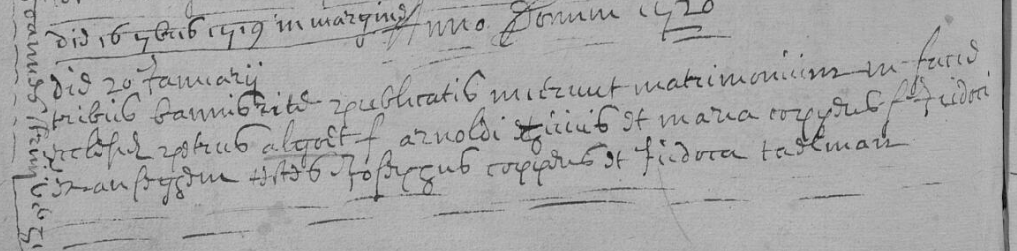 die 16 7bris 1719 in margine Anno Domini 1720
die 20 Januarij
tribus bannis rite publicatis inierunt matrimonium in facie
ecclesiae petrus algoet f arnoldi et maria coppens f judoci
testes Josephus coppens et judoca taelman